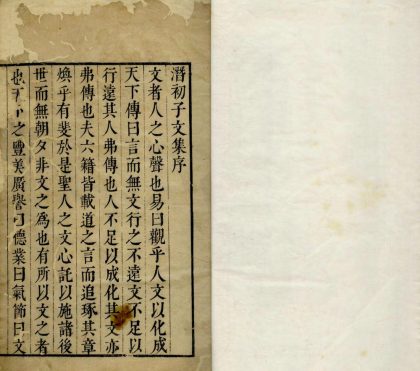 潛初子文集序
文者人之心聲也易曰觀乎人文以化成
天下傳曰言而無文行之不遠文不足以
行遠其人弗傳也人不足以成化其文亦
弗傳也夫六籍皆載道之言而追琢其章
煥乎有斐於是聖人之文心託以施諸後
世而無朝夕非文之為也有所以文之者
也 之豐美廣譽曰德業曰氣節曰文